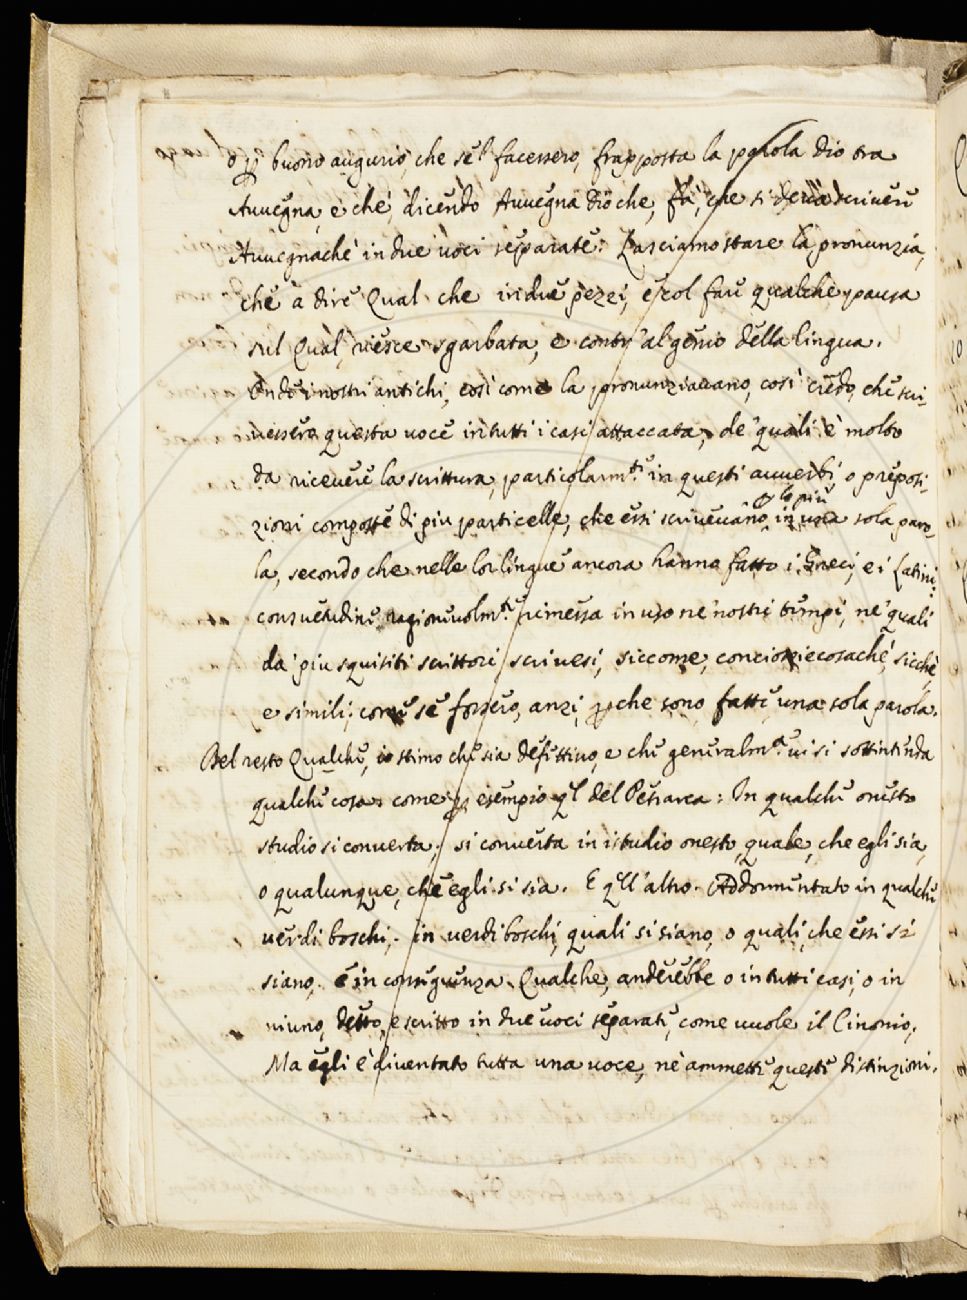 o ꝑ buono augurio, che se'l facessero, frapposta la parola Dio tra
Auuegna, e che, dicendo Auuegna Dio che, fà, che si debba scriuere
Auuegnache in due uoci separate. Lasciamo stare la pronunzia,
che à dire Qual che in due pezzi, e col fare qualche pausa
sul Qual, riesce sgarbata, e contr'al genio della lingua.
Onde i nostri antichi, così come la pronunziauano, così credo, che scri-
uessero questa uoce in tutti i casi attaccata, de' quali è molto
da riceuere la scrittura, particolarm.te in questi auuerbi, o preposi-
zioni composte di piu particelle, che essi scriueuano, ꝑ lo più in una sola paro-
la, secondo che nelle lor lingue ancora hanno fatto i Greci, e i Latini:
consuetudine ragioneuolm.te rimessa in uso ne' nostri tempi, ne' quali
da' piu squisiti scrittori scriuesi, siccome, conciossiecosaché, sicché,
e simili; come se fossero, anzi, ꝑche sono fatte una sola parola.
Del resto Qualche, io stimo che sia defettiuo, e che generalm.te ui si sottintenda
qualche cosa: come ꝑ esempio q.l del Petrarca: In qualche onesto
studio si conuerta, si conuerta in istudio onesto, quale, che egli sia,
o qualunque, che egli si sia. E q.ll'altro. Addormentato in qualche
uerdi boschi, in uerdi boschi, quali si siano, o quali, che essi si
siano. E in conseguenza Qualche, anderebbe o in tutti casi, o in
niuno, detto, e scritto in due uoci separate, come uuole il Cinonio,
Ma egli è diuentato tutta una uoce, nè ammette queste distinzioni.